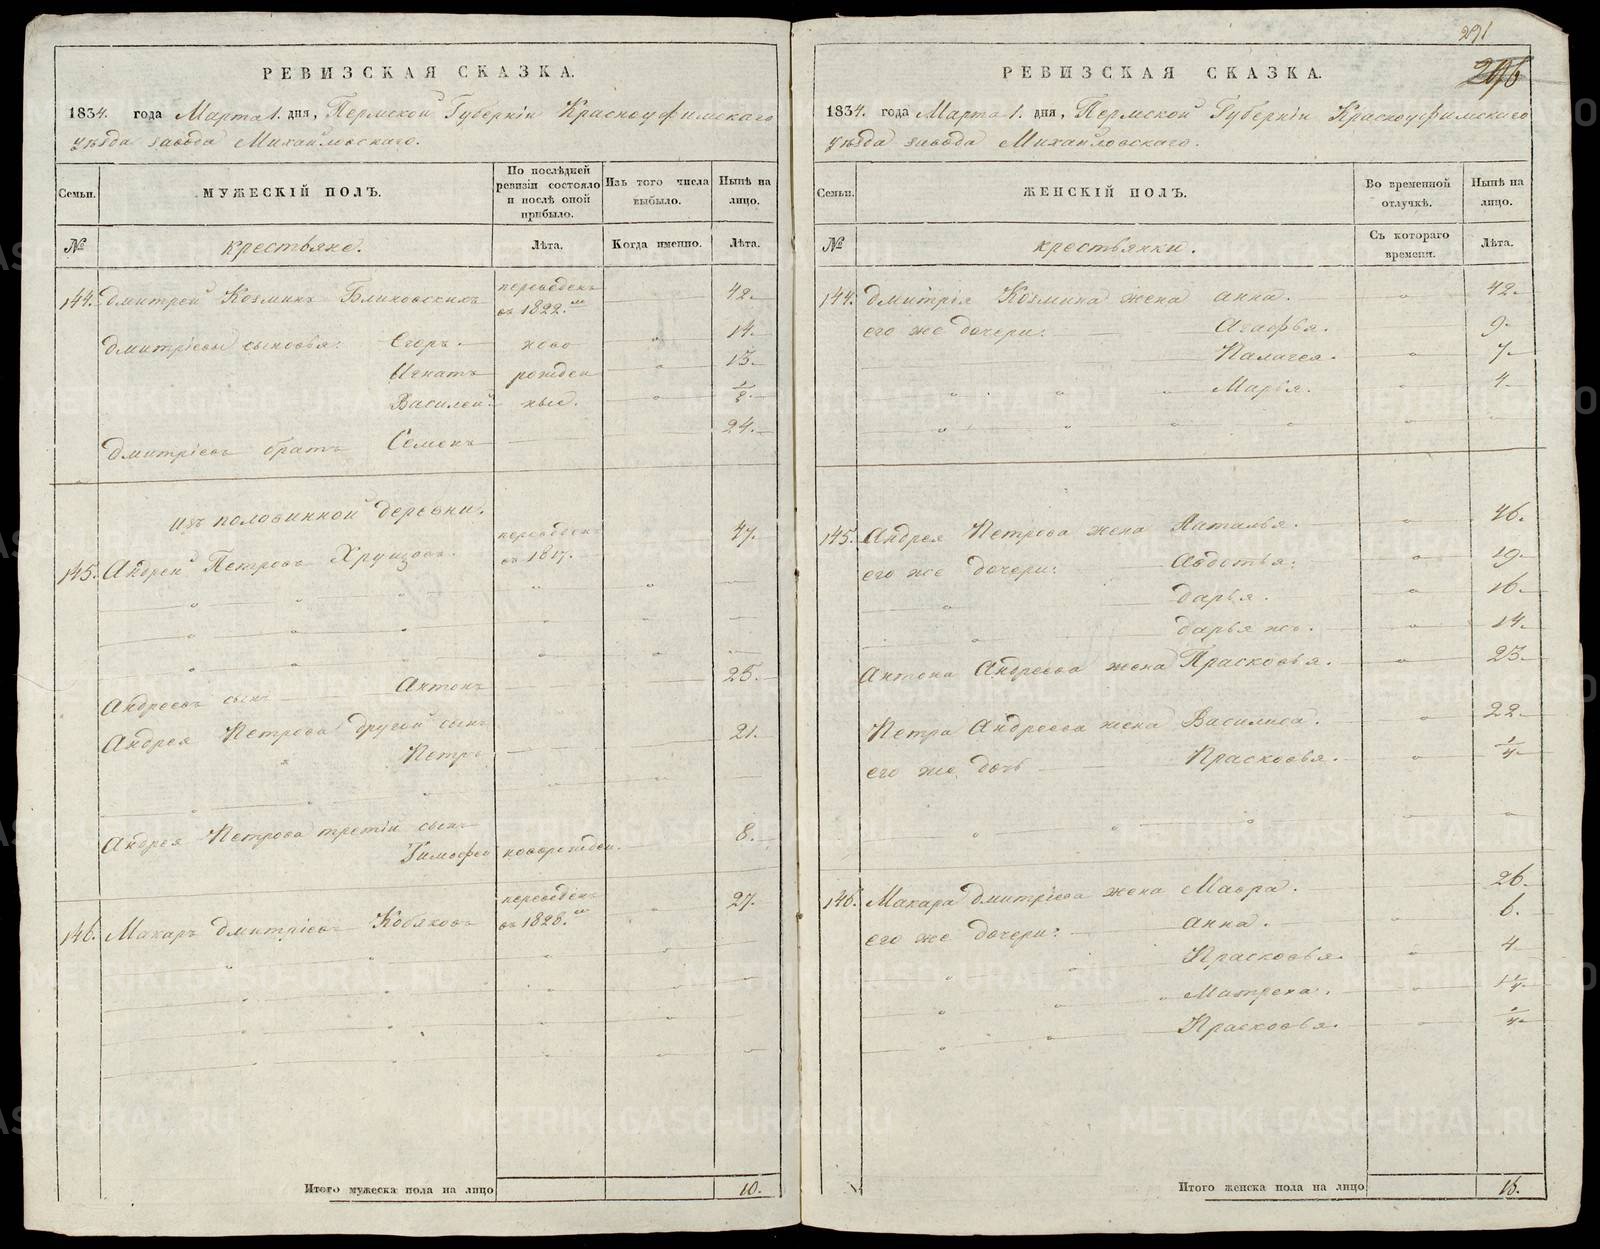 РЕВИЗСКАЯ СКАЗКА.
1834. года Марта 1. дня, Пермской Губерніи Красноуфимскаго
уѣзда завода Михайловскаго.
Семьи. МУЖЕСКІЙ ПОЛЪ. По послѣдней ревизіи состояло и послѣ оной прибыло. Изъ того числа выбыло. Нынѣ на лицо.
№ крестьяне. Лѣта. Когда именно. Лѣта.
144. Дмитрей Козминъ Блиновскихъ переведенъ въ 1822.мъ 42.
Дмитріевы сыновья: Егоръ. ново 14.
Игнатъ рожден 13.
Василей ные. 1/2.
Дмитріевъ братъ Семенъ 24.
Изъ половинной деревни.
145. Андрей Петровъ Хрунцовъ. переведенъ въ 1817. 47.
Андреевъ сынъ Антонъ 25.
Андрея Петрова другой сынъ
Петръ 21.
Андрея Петрова третій сынъ
Тимофей новорожден. 8.
146. Макаръ Дмитріевъ Кобяковъ переведенъ въ 1828.мъ 27.
Итого мужеска пола на лицо 10.
291
296
РЕВИЗСКАЯ СКАЗКА.
1834. года Марта 1. дня, Пермской Губерніи Красноуфимскаго
уѣзда завода Михайловскаго.
Семьи. ЖЕНСКІЙ ПОЛЪ. Во временной отлучкѣ. Нынѣ на лицо.
№ крестьянки. Съ котораго времени. Лѣта.
144. Дмитрія Козмина жена Анна. 42.
его же дочери: Агафья. 9.
Палагея. 7.
Марья. 4.
145. Андрея Петрова жена Наталья. 46.
его же дочери: Авдотья. 19.
Дарья. 16.
Дарья же. 14.
Антона Андреева жена Прасковья. 23.
Петра Андреева жена Василиса. 22.
его же дочь Прасковья. 1/4.
146. Макара Дмитріева жена Мавра. 26.
его же дочери: Анна. 6.
Прасковья. 4
Матрена. 1 1/4.
Прасковья.
Итого женска пола на лицо 16.
METRIKI.GASO-URAL.RU